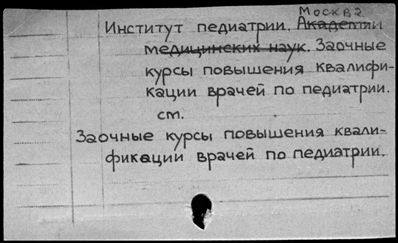 Москва
Институт педиатрии. Академии
медицинских наук. Заочные
курсы повышения квалифи-
кации врачей по педиатрии.
см.
Заочные курсы повышения квали-
фикации врачей по педиатрии.